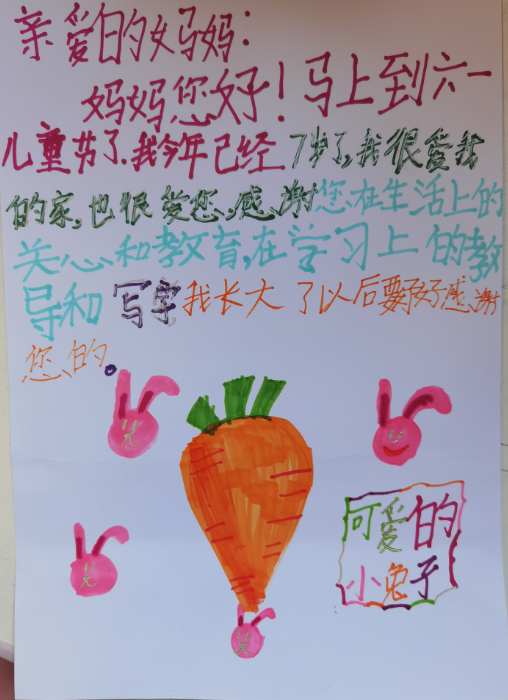 亲爱的妈妈：
妈妈您好！马上到六一
儿童节了.我今年已经7岁了,我很爱我
的家,也很爱您,感谢您在生活上的
关心和教育,在学习上的教
导和写字我长大了以后要好好感谢
您的。
可爱的
小兔子